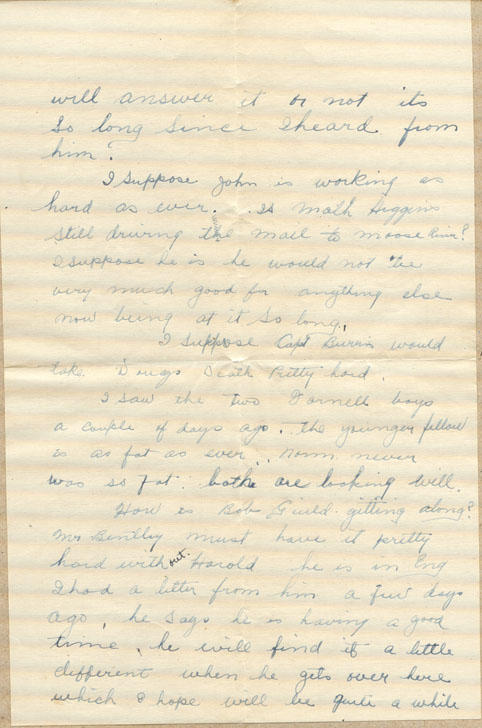 will answer it or not its
so long since I heard from
him?
I suppose John is working as
hard as ever. Is Math Higgins
still driving the mail to Moose River?
I suppose he is he would not be
very much good for anything else
now being at it so long.
I suppose Capt Burris would
take Dougs Death Pretty hard.
I saw the two boys
a couple of days ago. the younger fellow
is as fat as ever. Norm never
was so fat. bothe are looking well.
How is Bob gitting along?
Mrs must have it pretty
hard without Harold he is in Eng
I had a letter from him a few days
ago, he says he is having a good
time, he will find it a little
different when he gets over here
which I hope will be quite a while